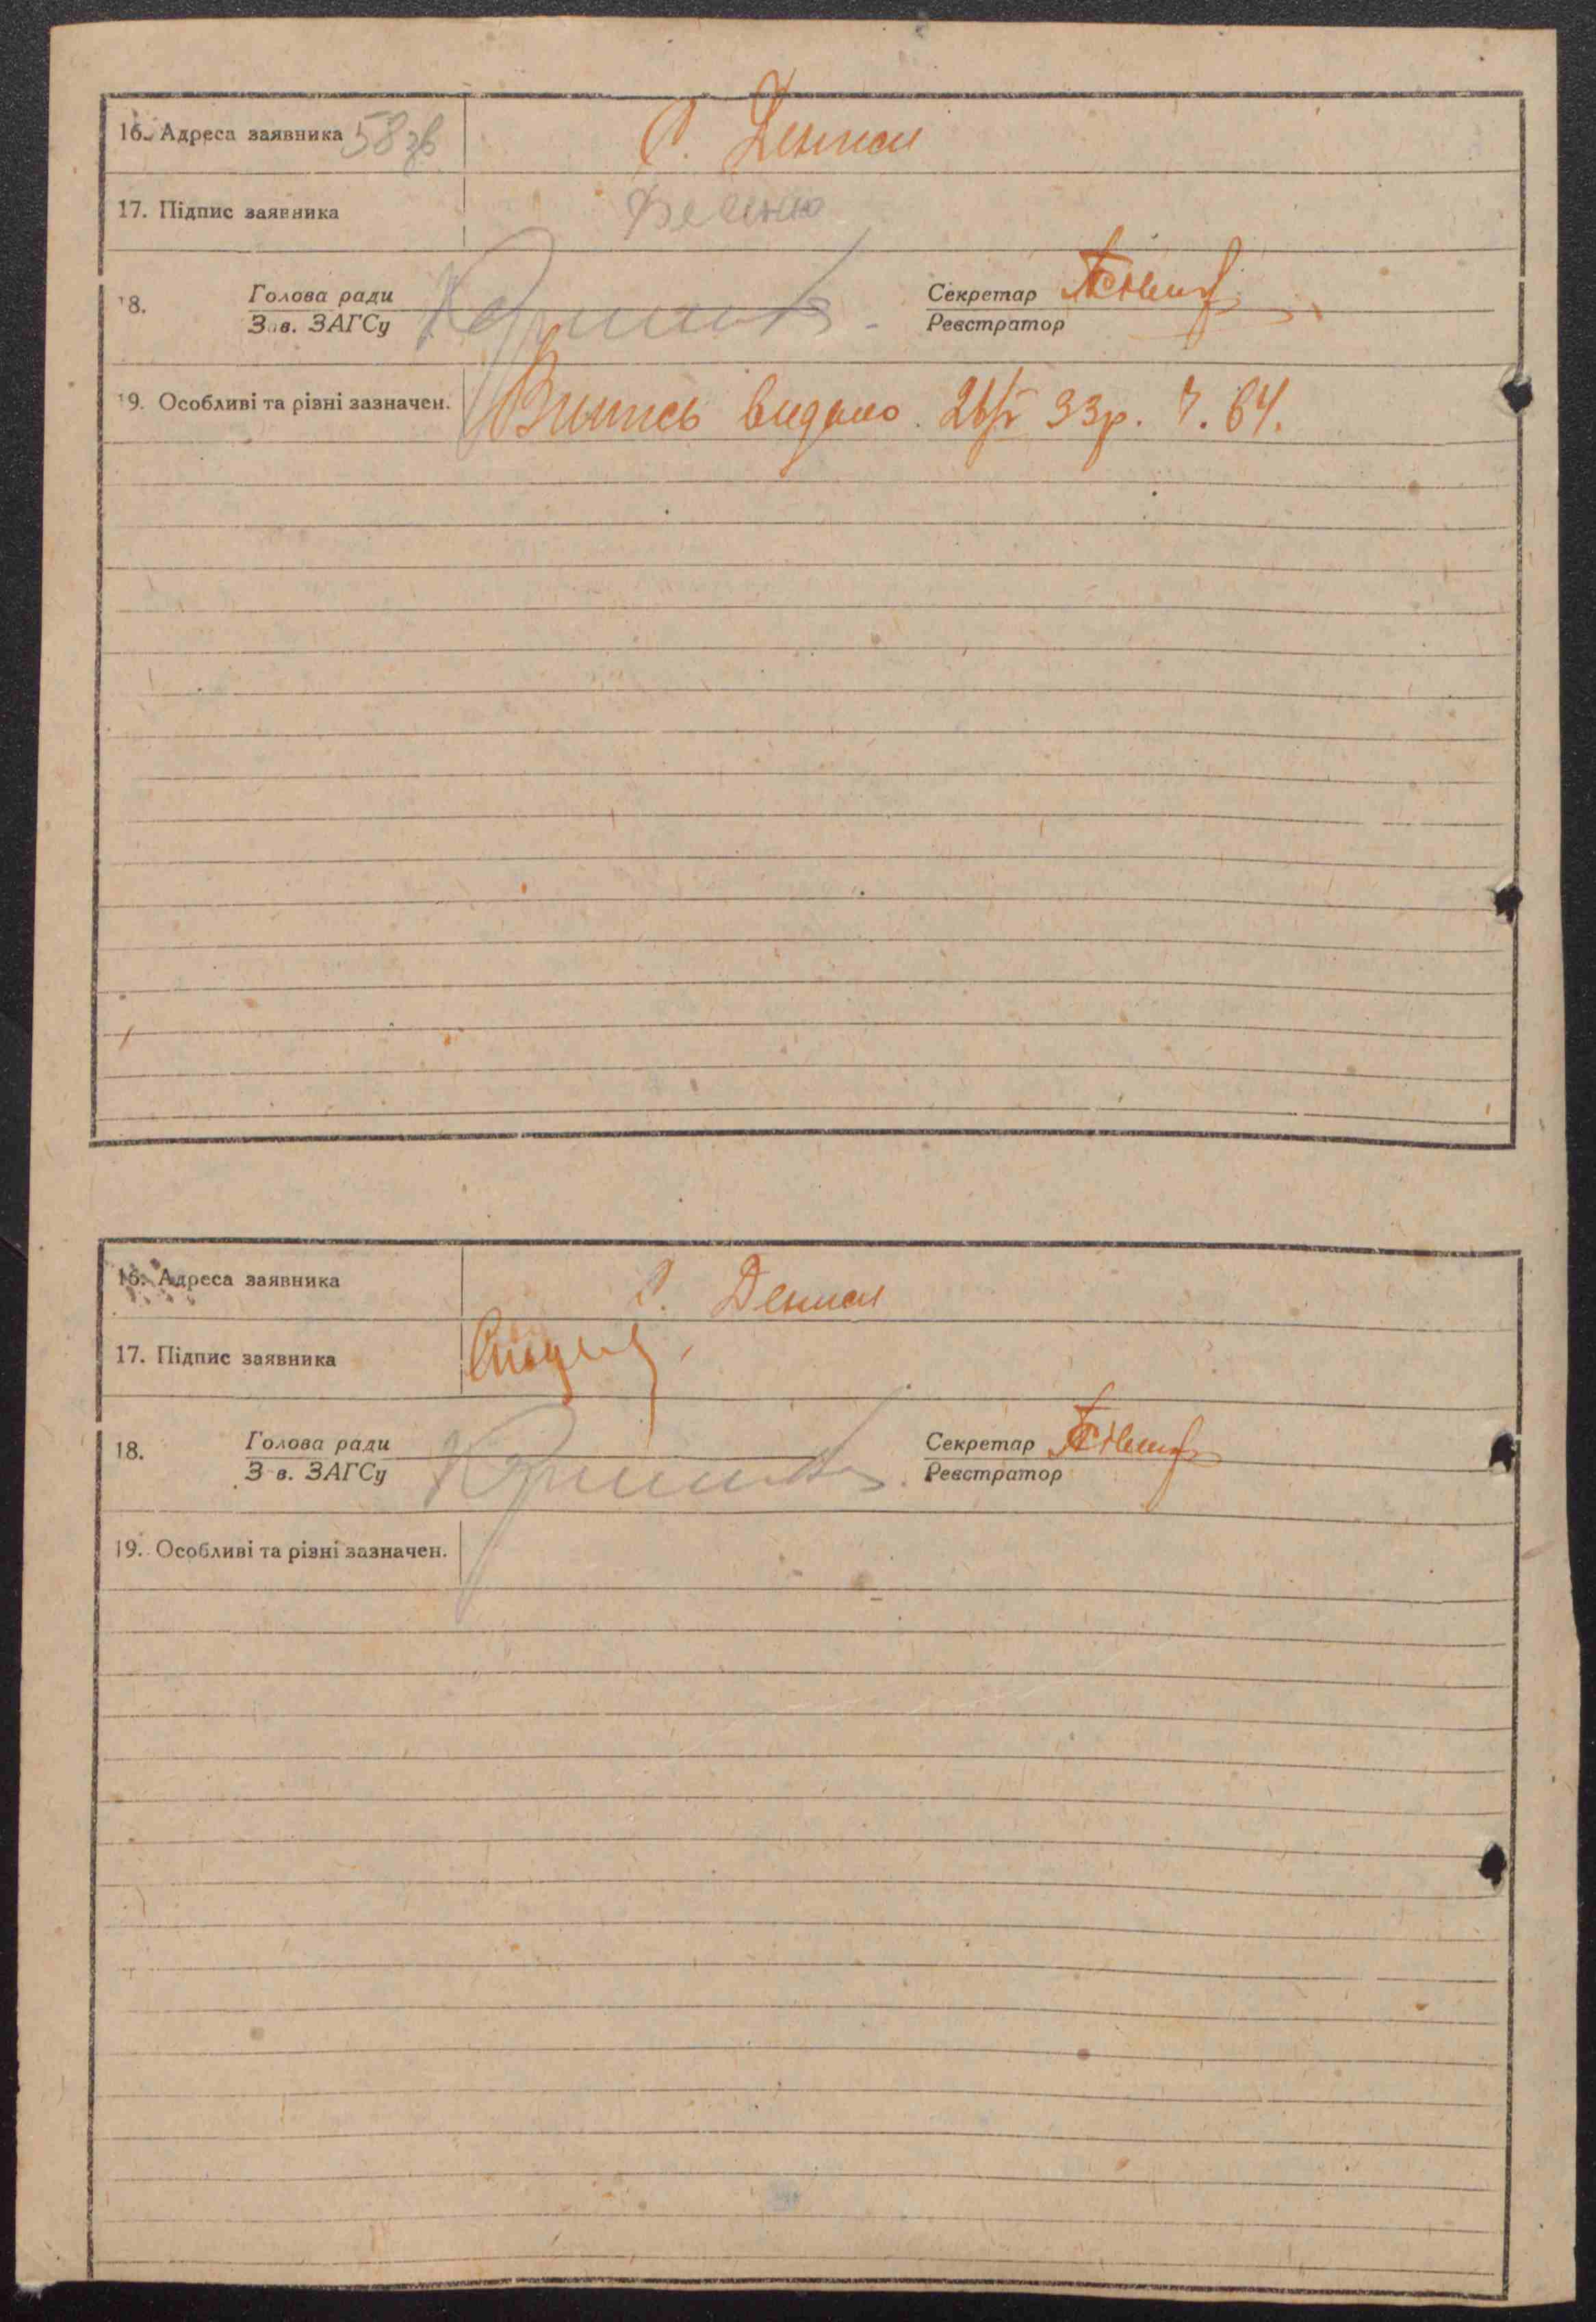 16. Адреса заявника 58 зв С. Денихи
17. Підпис заявника
18. Голова ради Секретар
Зав. ЗАГСу Реєстратор
19. Особливі та різні зазначен. Випись видано. 26/V 33р. 7. 64.
16. Адреса заявника С. Денихи
17. Підпис заявника
18. Голова ради Секретар
Зав. ЗАГСу Реєстратор
19. Особливі та різні зазначен.